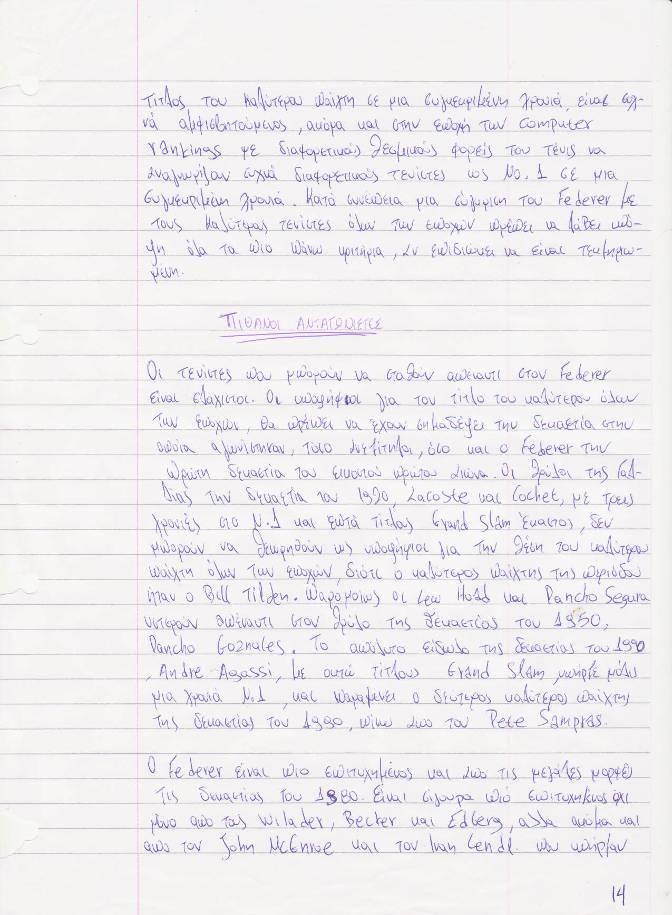 τίτλος του καλύτερου παίχτη σε μια συγκεκριμένη χρονιά, είναι συχ-
νά αμφισβητούμενος, ακόμα και στην εποχή των computer
rankings με διαφορετικούς θεσμικούς φορείς του τένις να
αναγνωρίζαν συχνά διαφορετικούς τενίστες ως No. 1 σε μια
συγκεκριμένη χρονιά. Κατά συνέπεια μια σύγκριση του Federer με
τους καλύτερους τενίστες όλων των εποχών πρέπει να λάβει υπό-
ψη όλα τα πιο πάνω κριτήρια, αν επιδιώκει να είναι τεκμηριω-
μένη.
ΠΙΘΑΝΟΙ ΑΝΤΑΓΩΝΙΣΤΕΣ
Οι τενίστες που μπορούν να σταθούν απέναντι στον Federer
είναι ελάχιστοι. Οι υποψήφιοι για τον τίτλο του καλύτερου όλων
των εποχών, θα πρέπει να έχουν σημαδέψει την δεκαετία στην
οποία αγωνίστηκαν, τόσο ανεξίτηλα, όσο και ο Federer την
πρώτη δεκαετία του εικοστού πρώτου αιώνα. Οι θρύλοι της Γαλ-
λίας την δεκαετία του 1920, Lacoste και Cochet, με τρεις
χρονιές στο Ν.1 και εφτά τίτλους Grand Slam έκαστος, δεν
μπορούν να θεωρηθούν ως υποψήφιοι για την θέση του καλύτερου
παίχτη όλων των εποχών, διότι ο καλύτερος παίχτης της περιόδου
ήταν ο Bill Tilden. Παρομοίως οι Lew Hoad και Pancho Segura
υστερούν απέναντι στον θρύλο της δεκαετίας του 1950,
Pancho Goznales. Το απόλυτο είδωλο της δεκαετίας του 1990
, Andre Agassi, με οκτώ τίτλους Grand Slam, υπήρξε μόλις
μια χρονιά Ν.1, και παραμένει ο δεύτερος καλύτερος παίχτης
της δεκαετίας του 1990, πίσω από τον Pete Sampras.
Ο Federer είναι πιο επιτυχημένος και από τις μεγάλες μορφές
τις δεκαετίας του 1980. Είναι σίγουρα πιό επιτυχημένος όχι
μόνο από τους Wilader, Becker και Edberg, αλλα ακόμα και
από τον John McEnroe και τον Ivan Lendl. που υπήρξαν
14